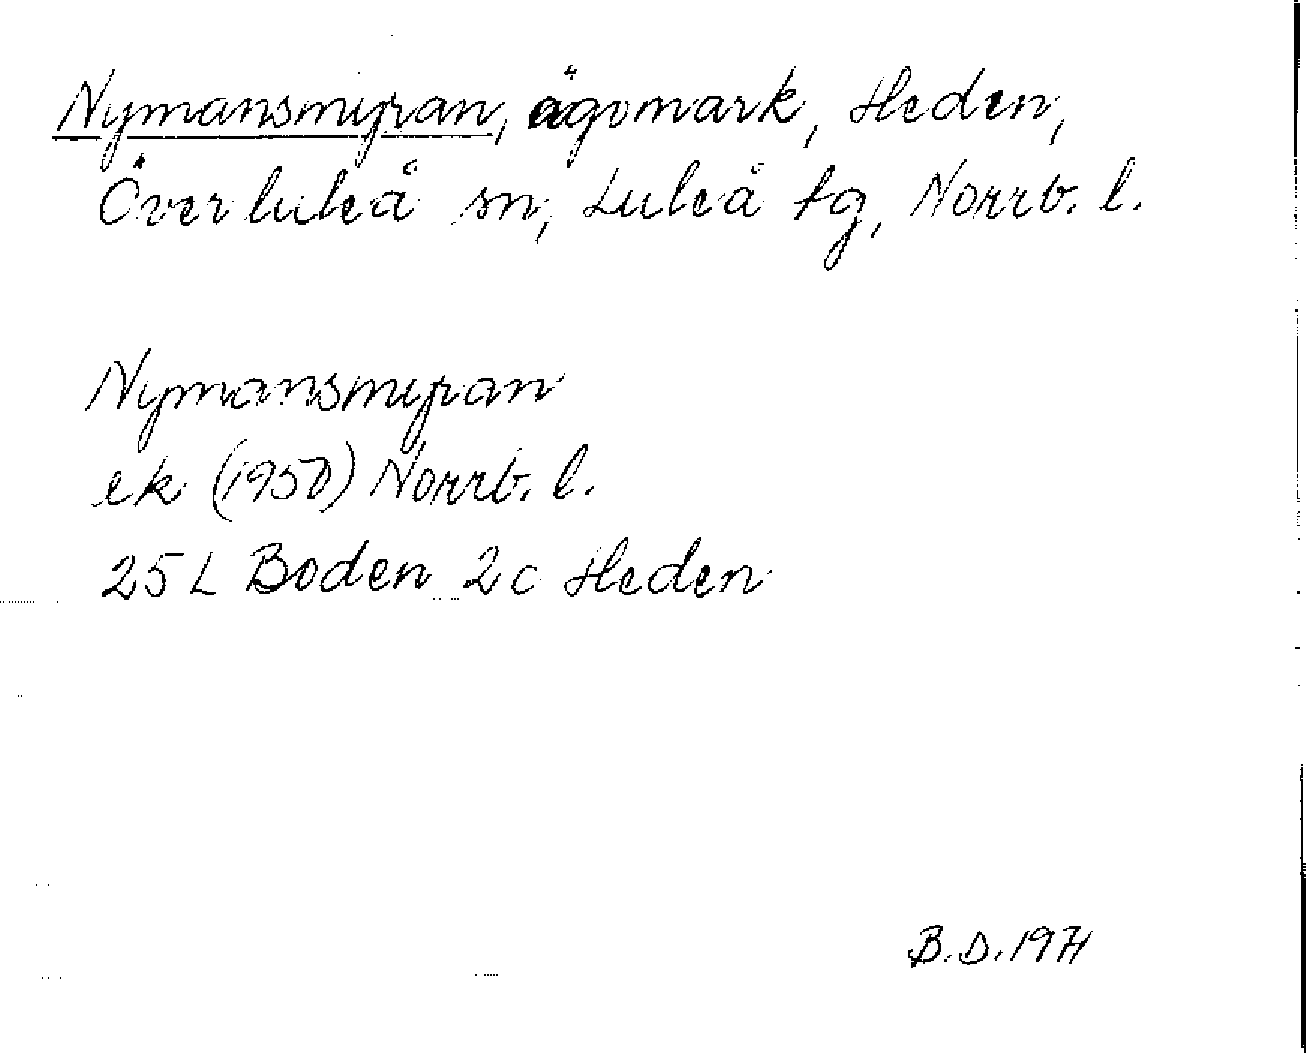 Nymansmyran, ägomark, Heden,
Överluleå sn, Luleå tg, Norrb. l.
Nymansmyran
ek (1950) Norrb. l.
25 L Boden 2c Heden
B.D. 1971